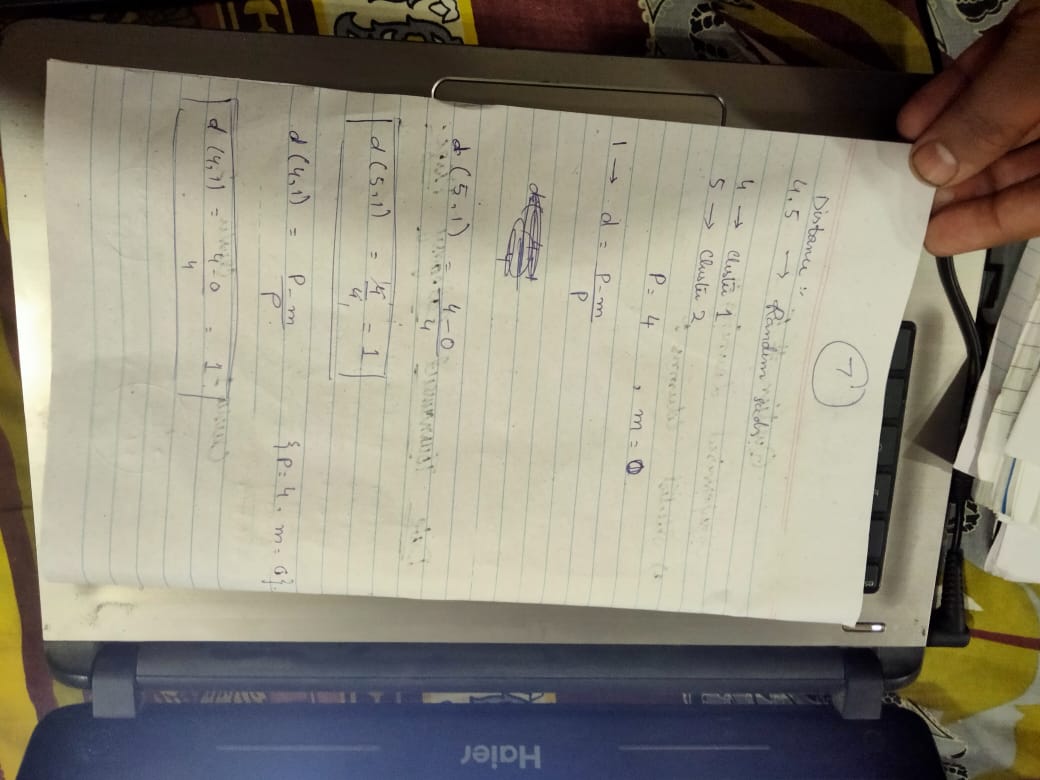 7
Distance :-
4,5 → Random seeds.
4 → Cluster 1
5 → Cluster 2
P = 4 , m = 0
1 → d = P-m
P
d(5,1) = 4-0
4
d(5,1) = 4 = 1
4
d(4,1) = P-m {P=4, m=0}.
P
d(4,1) = 4-0 = 1
4
Haier